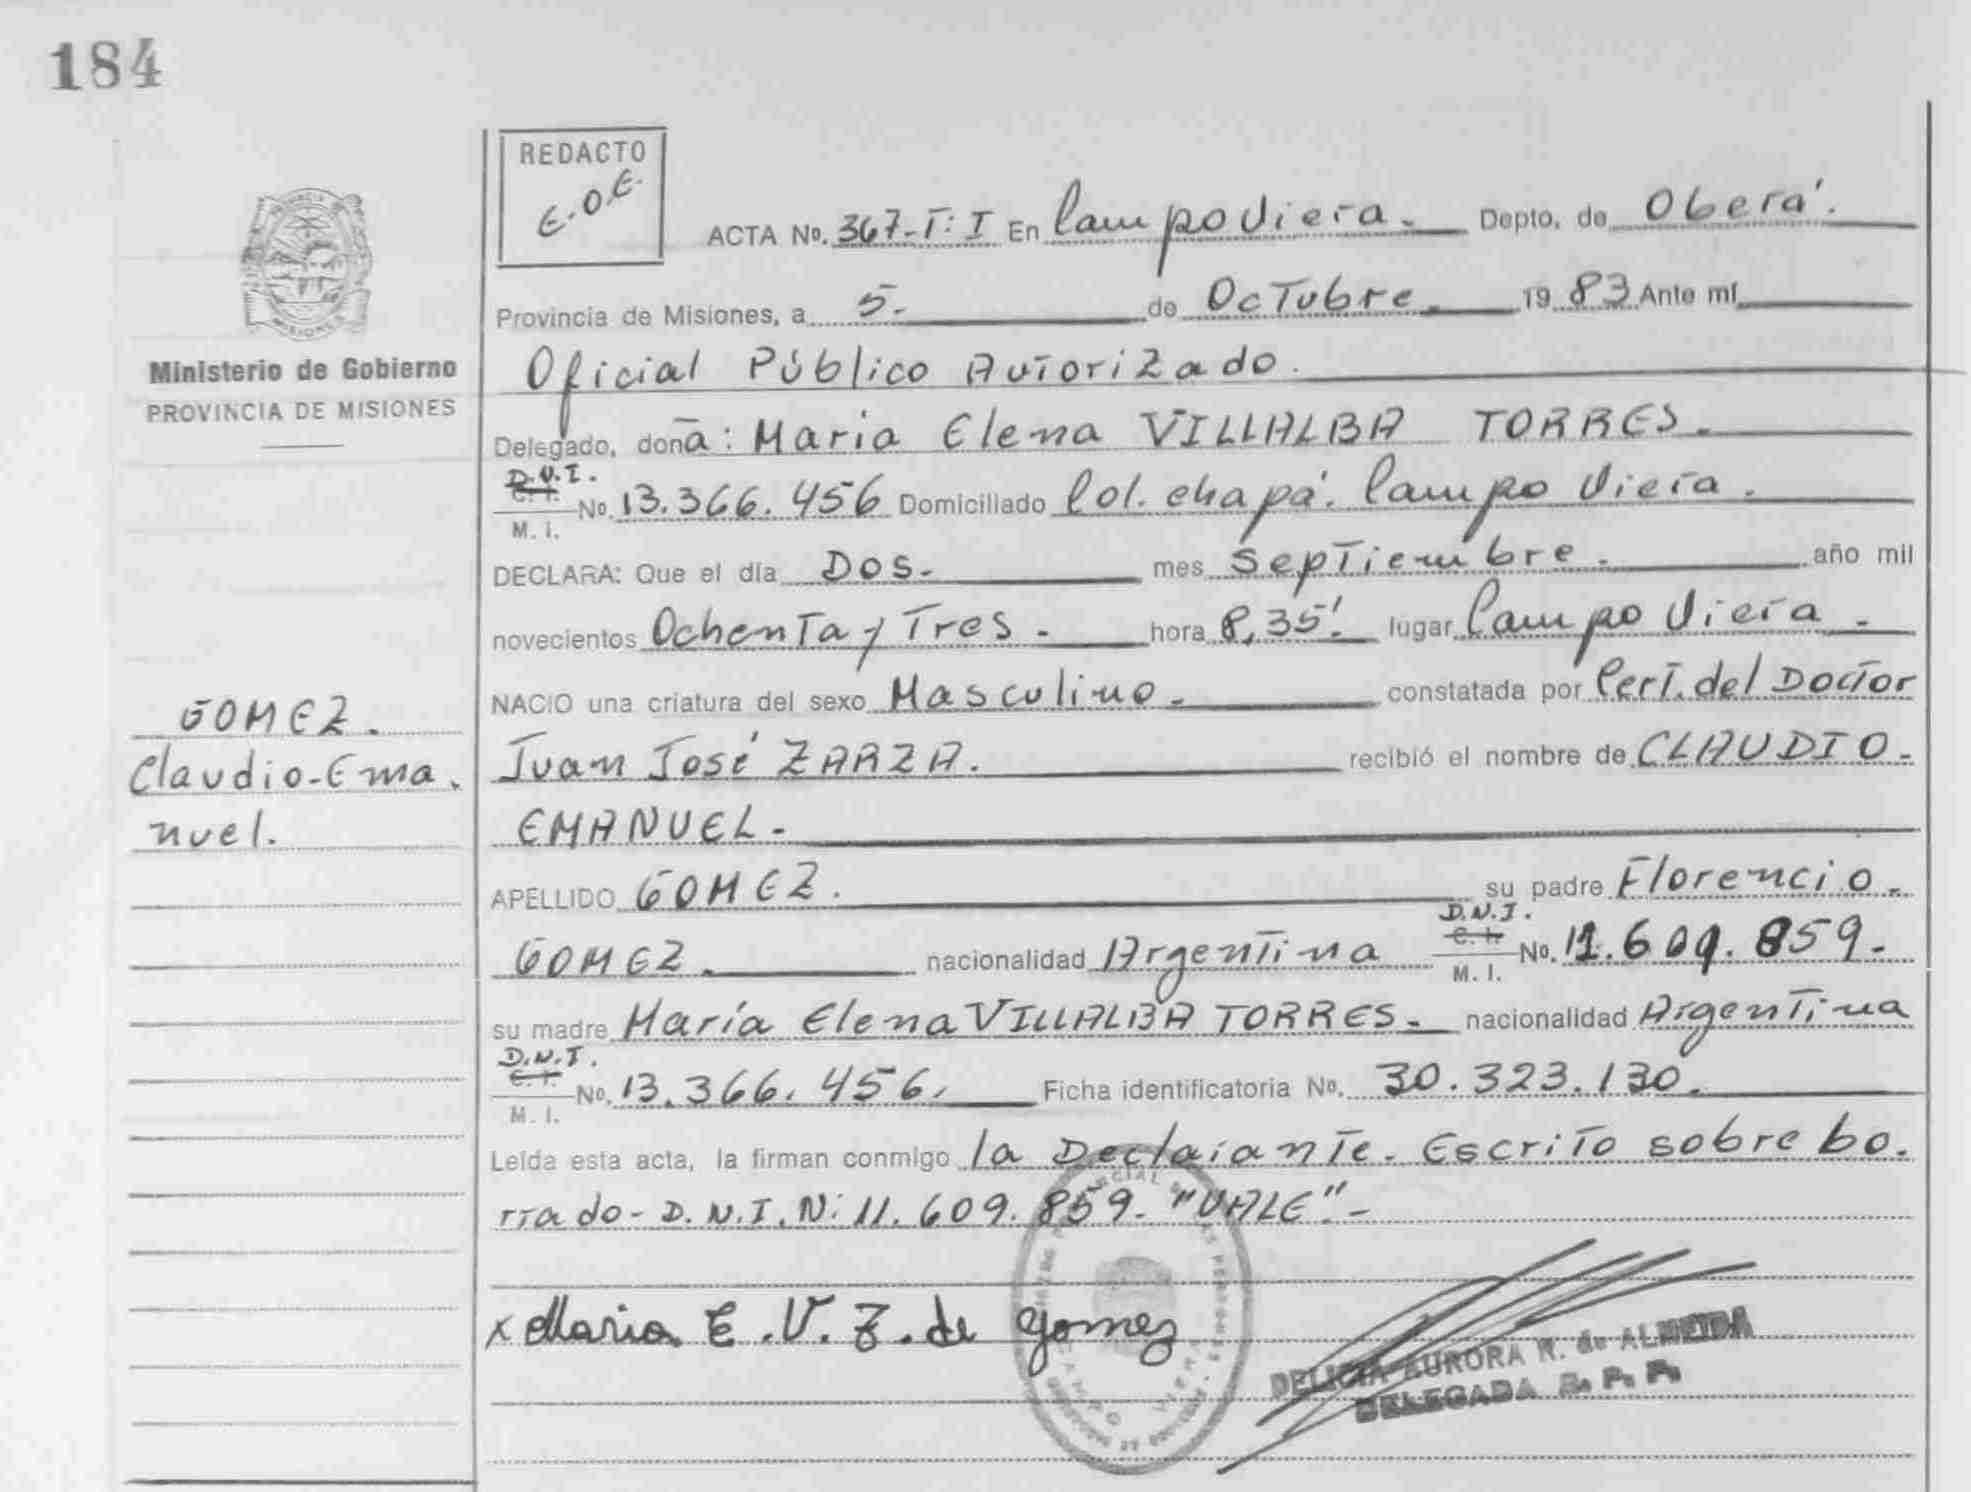 184
REDACTO
E.O.E.
ACTA No. 367-T: I En Campo Viera. Depto, de Oberá.
Provincia de Misiones, a 5. de Octubre. 19 83 Ante mí
Oficial Público Autorizado.
Ministerio de Gobierno
PROVINCIA DE MISIONES
MISIONES
Delegado, doña: Maria Elena VILLALBA TORRES.
D.N.I.
C. I.
M. I.
No. 13.366.456 Domiciliado Col. chapá. Campo Viera.
DECLARA: Que el día Dos. mes Septiembre. año mil
novecientos Ochenta y Tres. hora 8,35'. lugar Campo Viera.
NACIO una criatura del sexo Masculino. constatada por Cert. del Doctor
Juan José ZARZA. recibió el nombre de CLAUDIO-
EMANUEL.
GOMEZ.
Claudio-Ema.
nuel.
APELLIDO GOMEZ. su padre Florencio.
GOMEZ. nacionalidad Argentina D.N.I.
C. I.
M. I.
No. 11.609.859.
su madre María Elena VILLALBA TORRES. nacionalidad Argentina
D.N.I.
C. I.
M. I.
No. 13.366.456. Ficha identificatoria No. 30.323.130.
Leída esta acta, la firman conmigo la Declarante. Escrito sobre bo.
rrado- D.N.I.N: 11.609.859. "VALE".-
x Maria E. V. T. de Gomez
DELICIA AURORA R. de ALMEIDA
DELEGADA R. P. P.